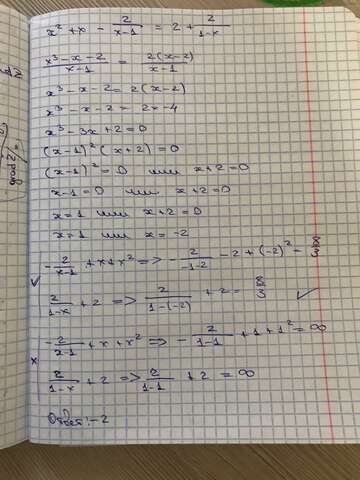 x² + x - 2/(x-1) = 2 + 2/(1-x)
(x³ - x - 2)/(x-1) = 2(x-2)/(x-1)
x³ - x - 2 = 2(x-2)
x³ - x - 2 = 2x - 4
x³ - 3x + 2 = 0
(x-1)² (x+2) = 0
(x-1)² = 0 или x+2 = 0
x-1 = 0 или x+2 = 0
x = 1 или x+2 = 0
x = 1 или x = -2
-2/(x-1) + x + x² => -2/(-1-2) - 2 + (-2)² = 8/3
v 2/(1-x) + 2 => 2/(1-(-2)) + 2 = 8/3 ✓
-2/(x-1) + x + x² => -2/(1-1) + 1 + 1² = ∞
x 2/(1-x) + 2 => 2/(1-1) + 2 = ∞
Ответ: -2